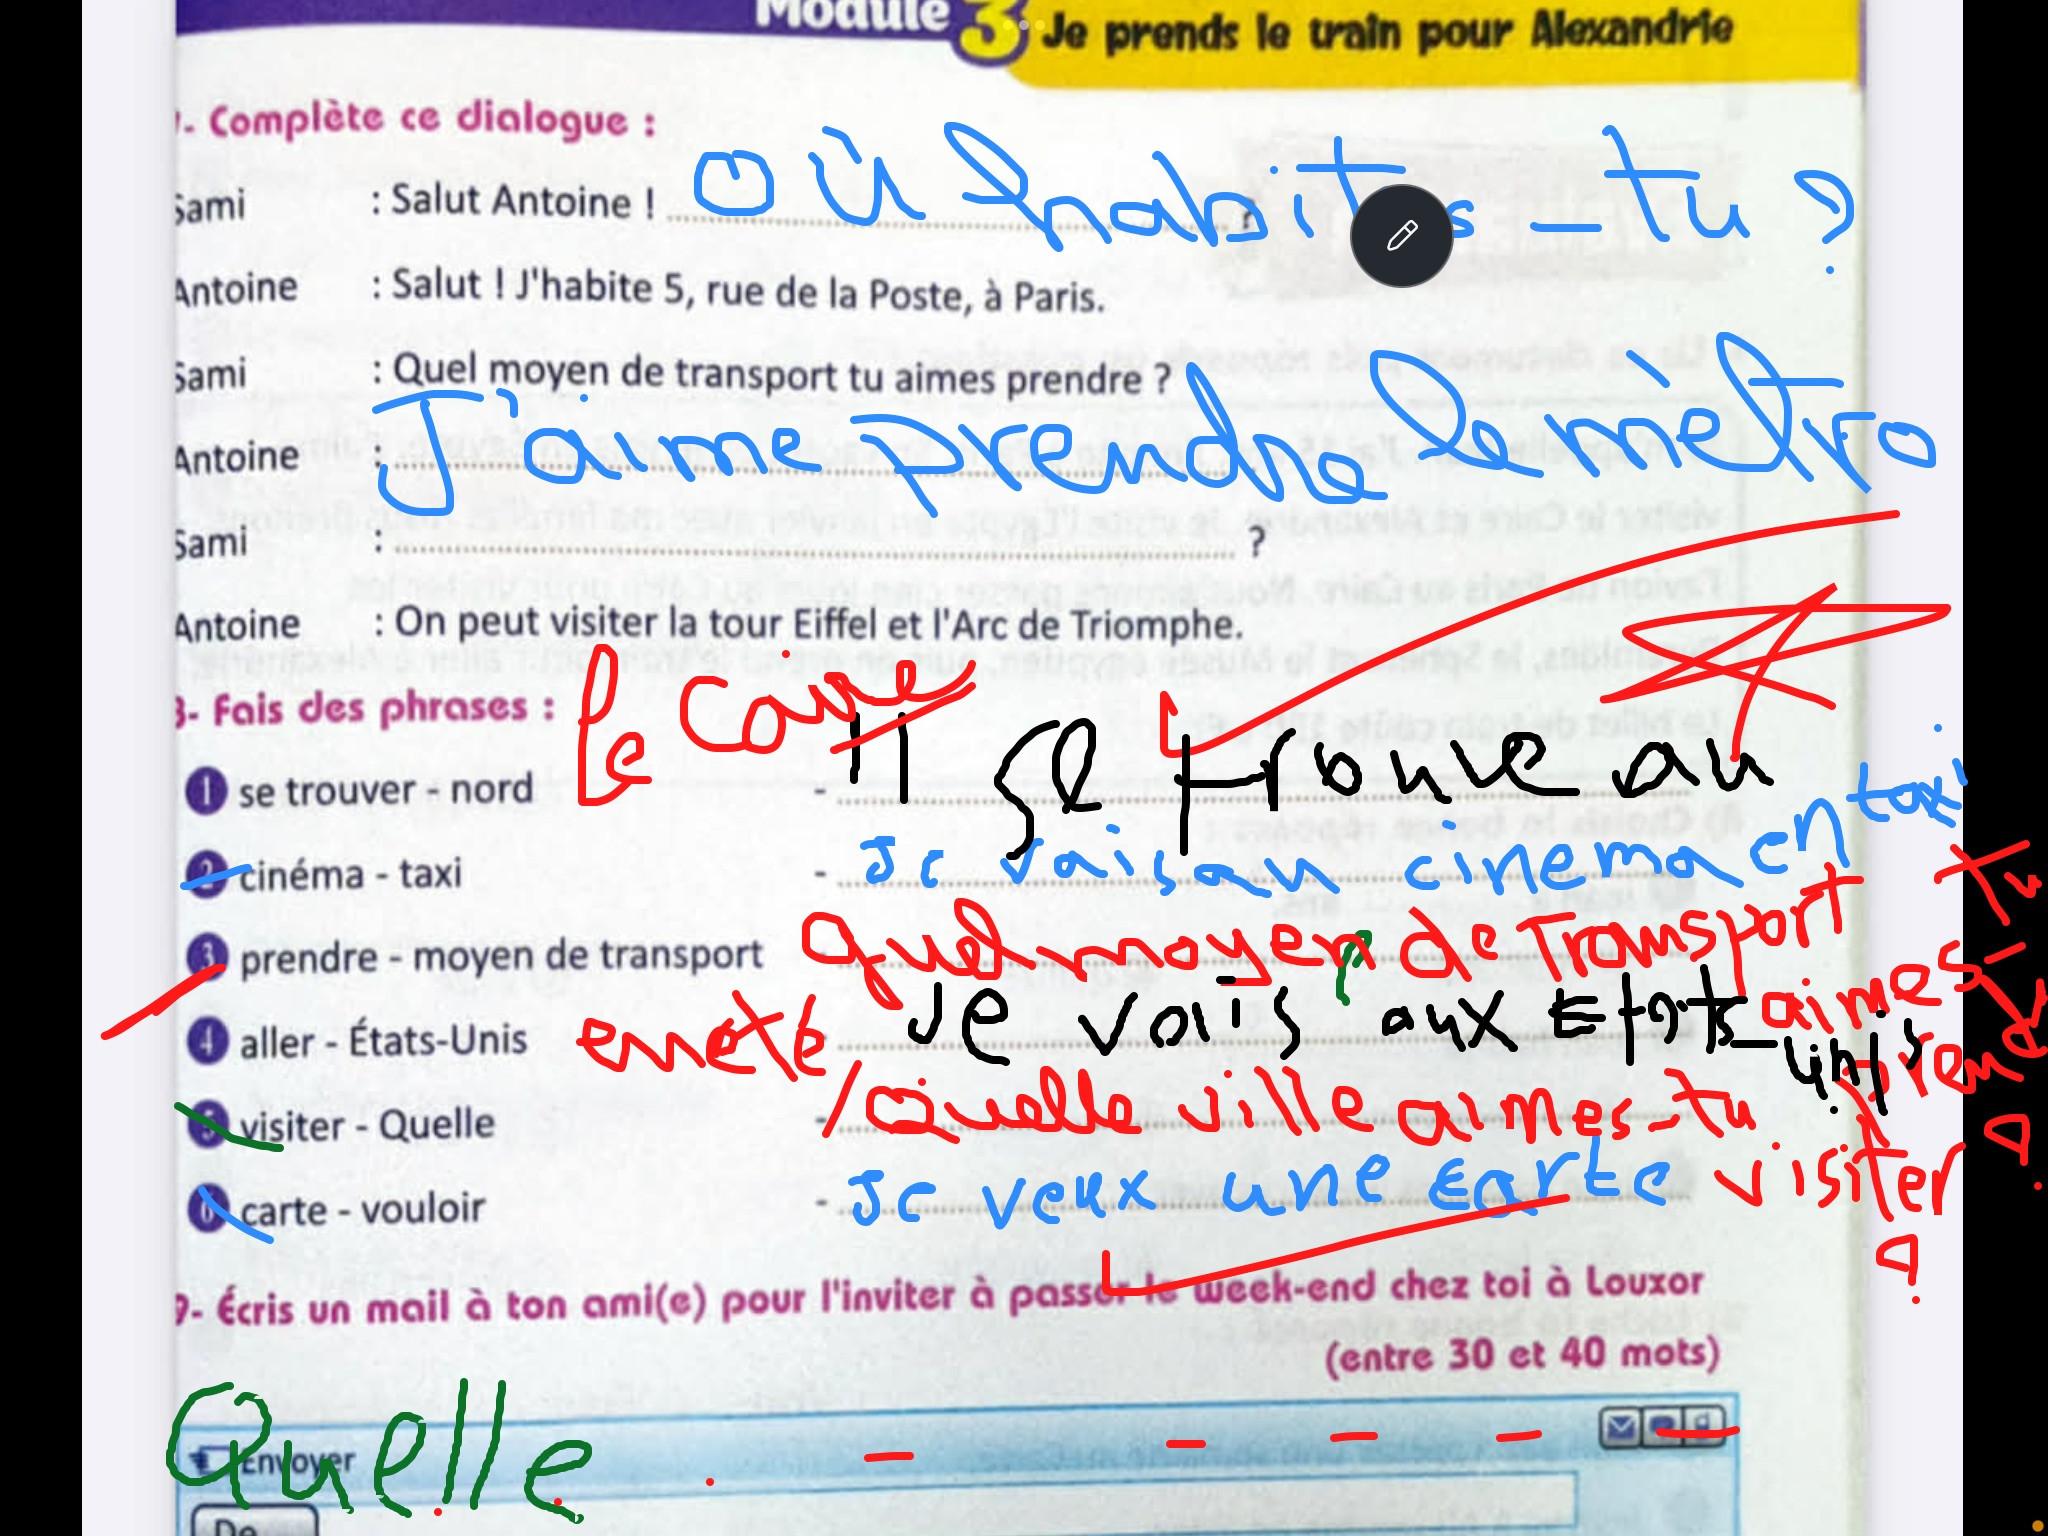 Module 3 Je prends le train pour Alexandrie
- Complète ce dialogue :
Sami : Salut Antoine ! ........ ? Où habites-tu ?
Antoine : Salut ! J'habite 5, rue de la Poste, à Paris.
Sami : Quel moyen de transport tu aimes prendre ?
Antoine : J'aime prendre le métro
Sami : ........ ?
Antoine : On peut visiter la tour Eiffel et l'Arc de Triomphe.
- Fais des phrases :
le Caire
1 se trouver - nord - Il se trouve au
2 cinéma - taxi - Je vais au cinema en taxi
3 prendre - moyen de transport Quel moyen de transport aimes-tu
4 aller - États-Unis Je vais aux Etats-unis
en été / Quelle ville aimes-tu visiter ?
5 visiter - Quelle -
6 carte - vouloir - Je veux une carte
9- Écris un mail à ton ami(e) pour l'inviter à passer le week-end chez toi à Louxor
(entre 30 et 40 mots)
Quelle
Envoyer
De